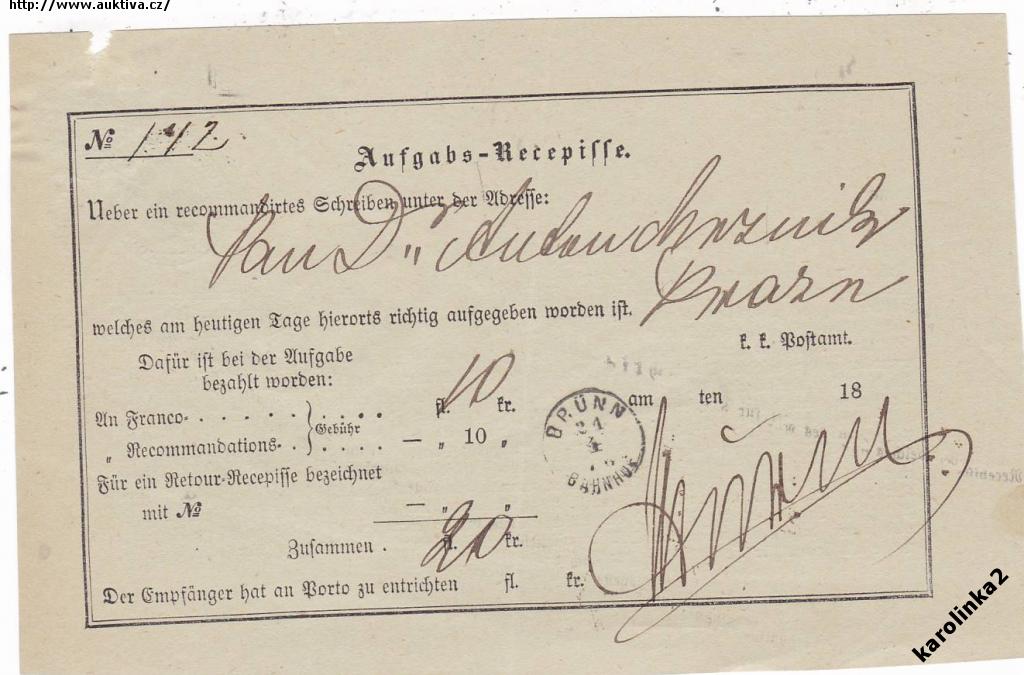 http://www.auktiva.cz/
No 142
Aufgabs-Recepisse.
Ueber ein recommandirtes Schreiben unter der Adresse:
Pan Dr Anton Mezník
welches am heutigen Tage hierorts richtig aufgegeben worden ist.
k. k. Postamt.
Dafür ist bei der Aufgabe
bezahlt worden:
An Franco- . . . . . } . . . . fl. 10 kr.
„ Recommandations- . } Gebühr . . . . — „ 10 „
am ten 18
BRÜNN
BAHNHOF
Für ein Retour-Recepisse bezeichnet
mit No — „ „
Zusammen . fl. 20 kr.
Der Empfänger hat an Porto zu entrichten fl. kr.
karolinka2